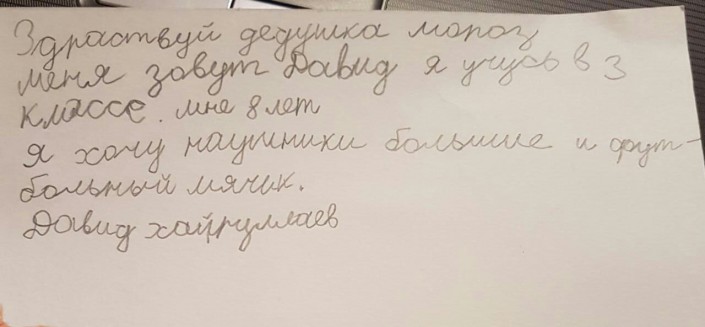 Здраствуй дедушка мороз
меня зовут Давид я учусь в 3
классе. мне 8 лет
я хочу наушники большие и фут-
больный мячик.
Давид хайруллаев